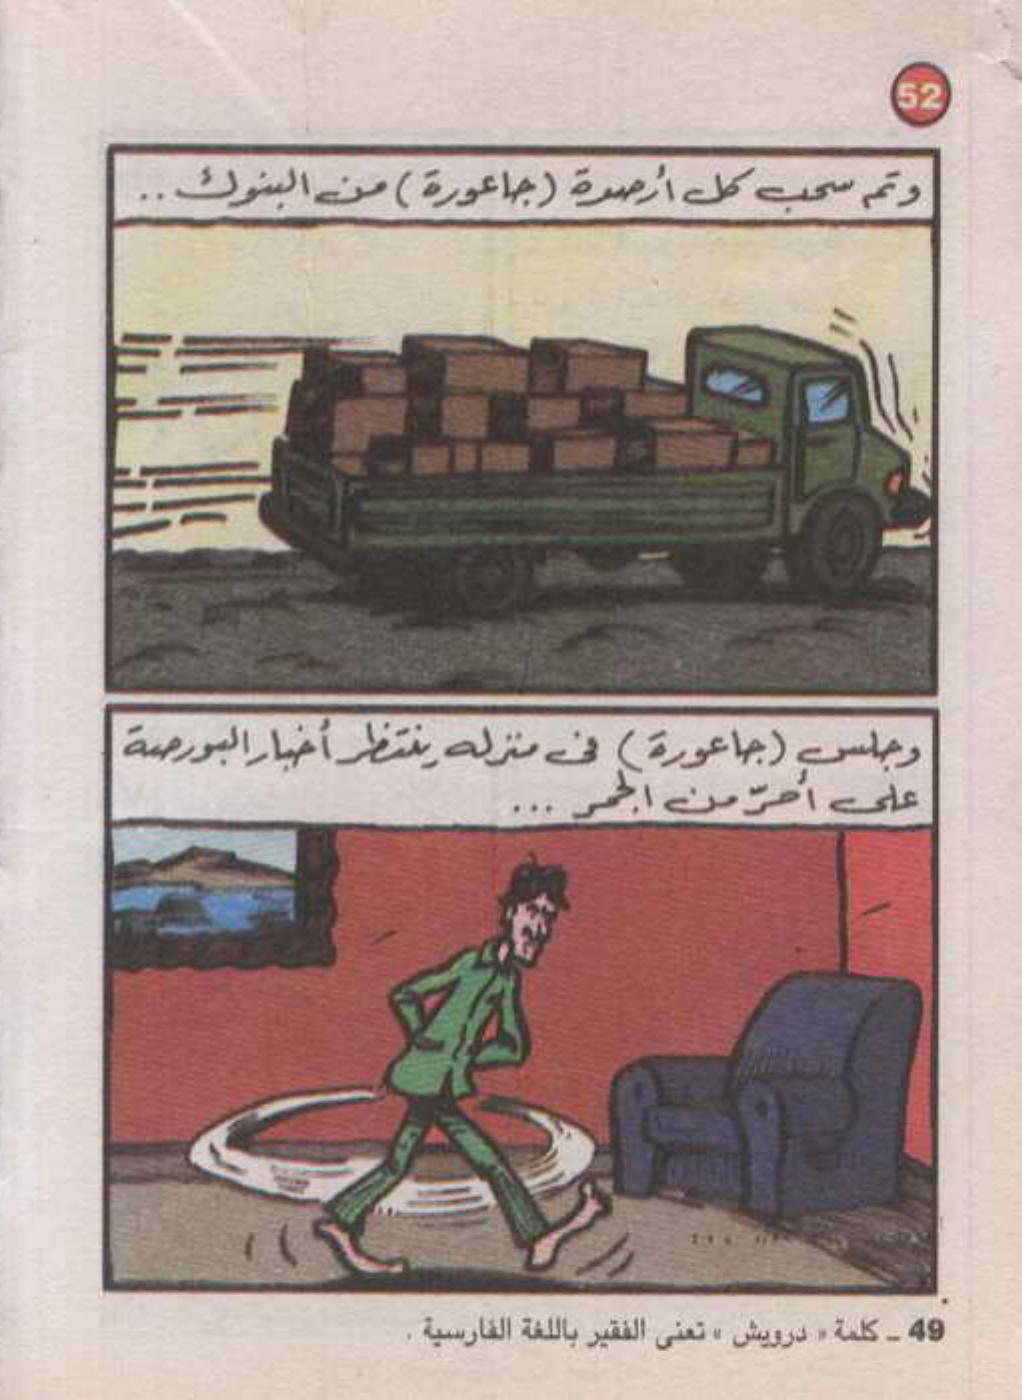 52
وتم سحب كل أرصدة (جاعورة) من البنوك ..
وجلس (جاعورة) فى منزله ينتظر أخبار البورصة
على أحرّ من الجمر ...
49 ــ كلمة « درويش » تعنى الفقير باللغة الفارسية .